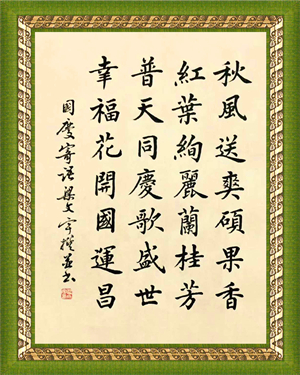 秋風送爽碩果香
紅葉絢麗蘭桂芳
普天同慶歌盛世
幸福花開國運昌
國慶寄語梁文宇撰并書